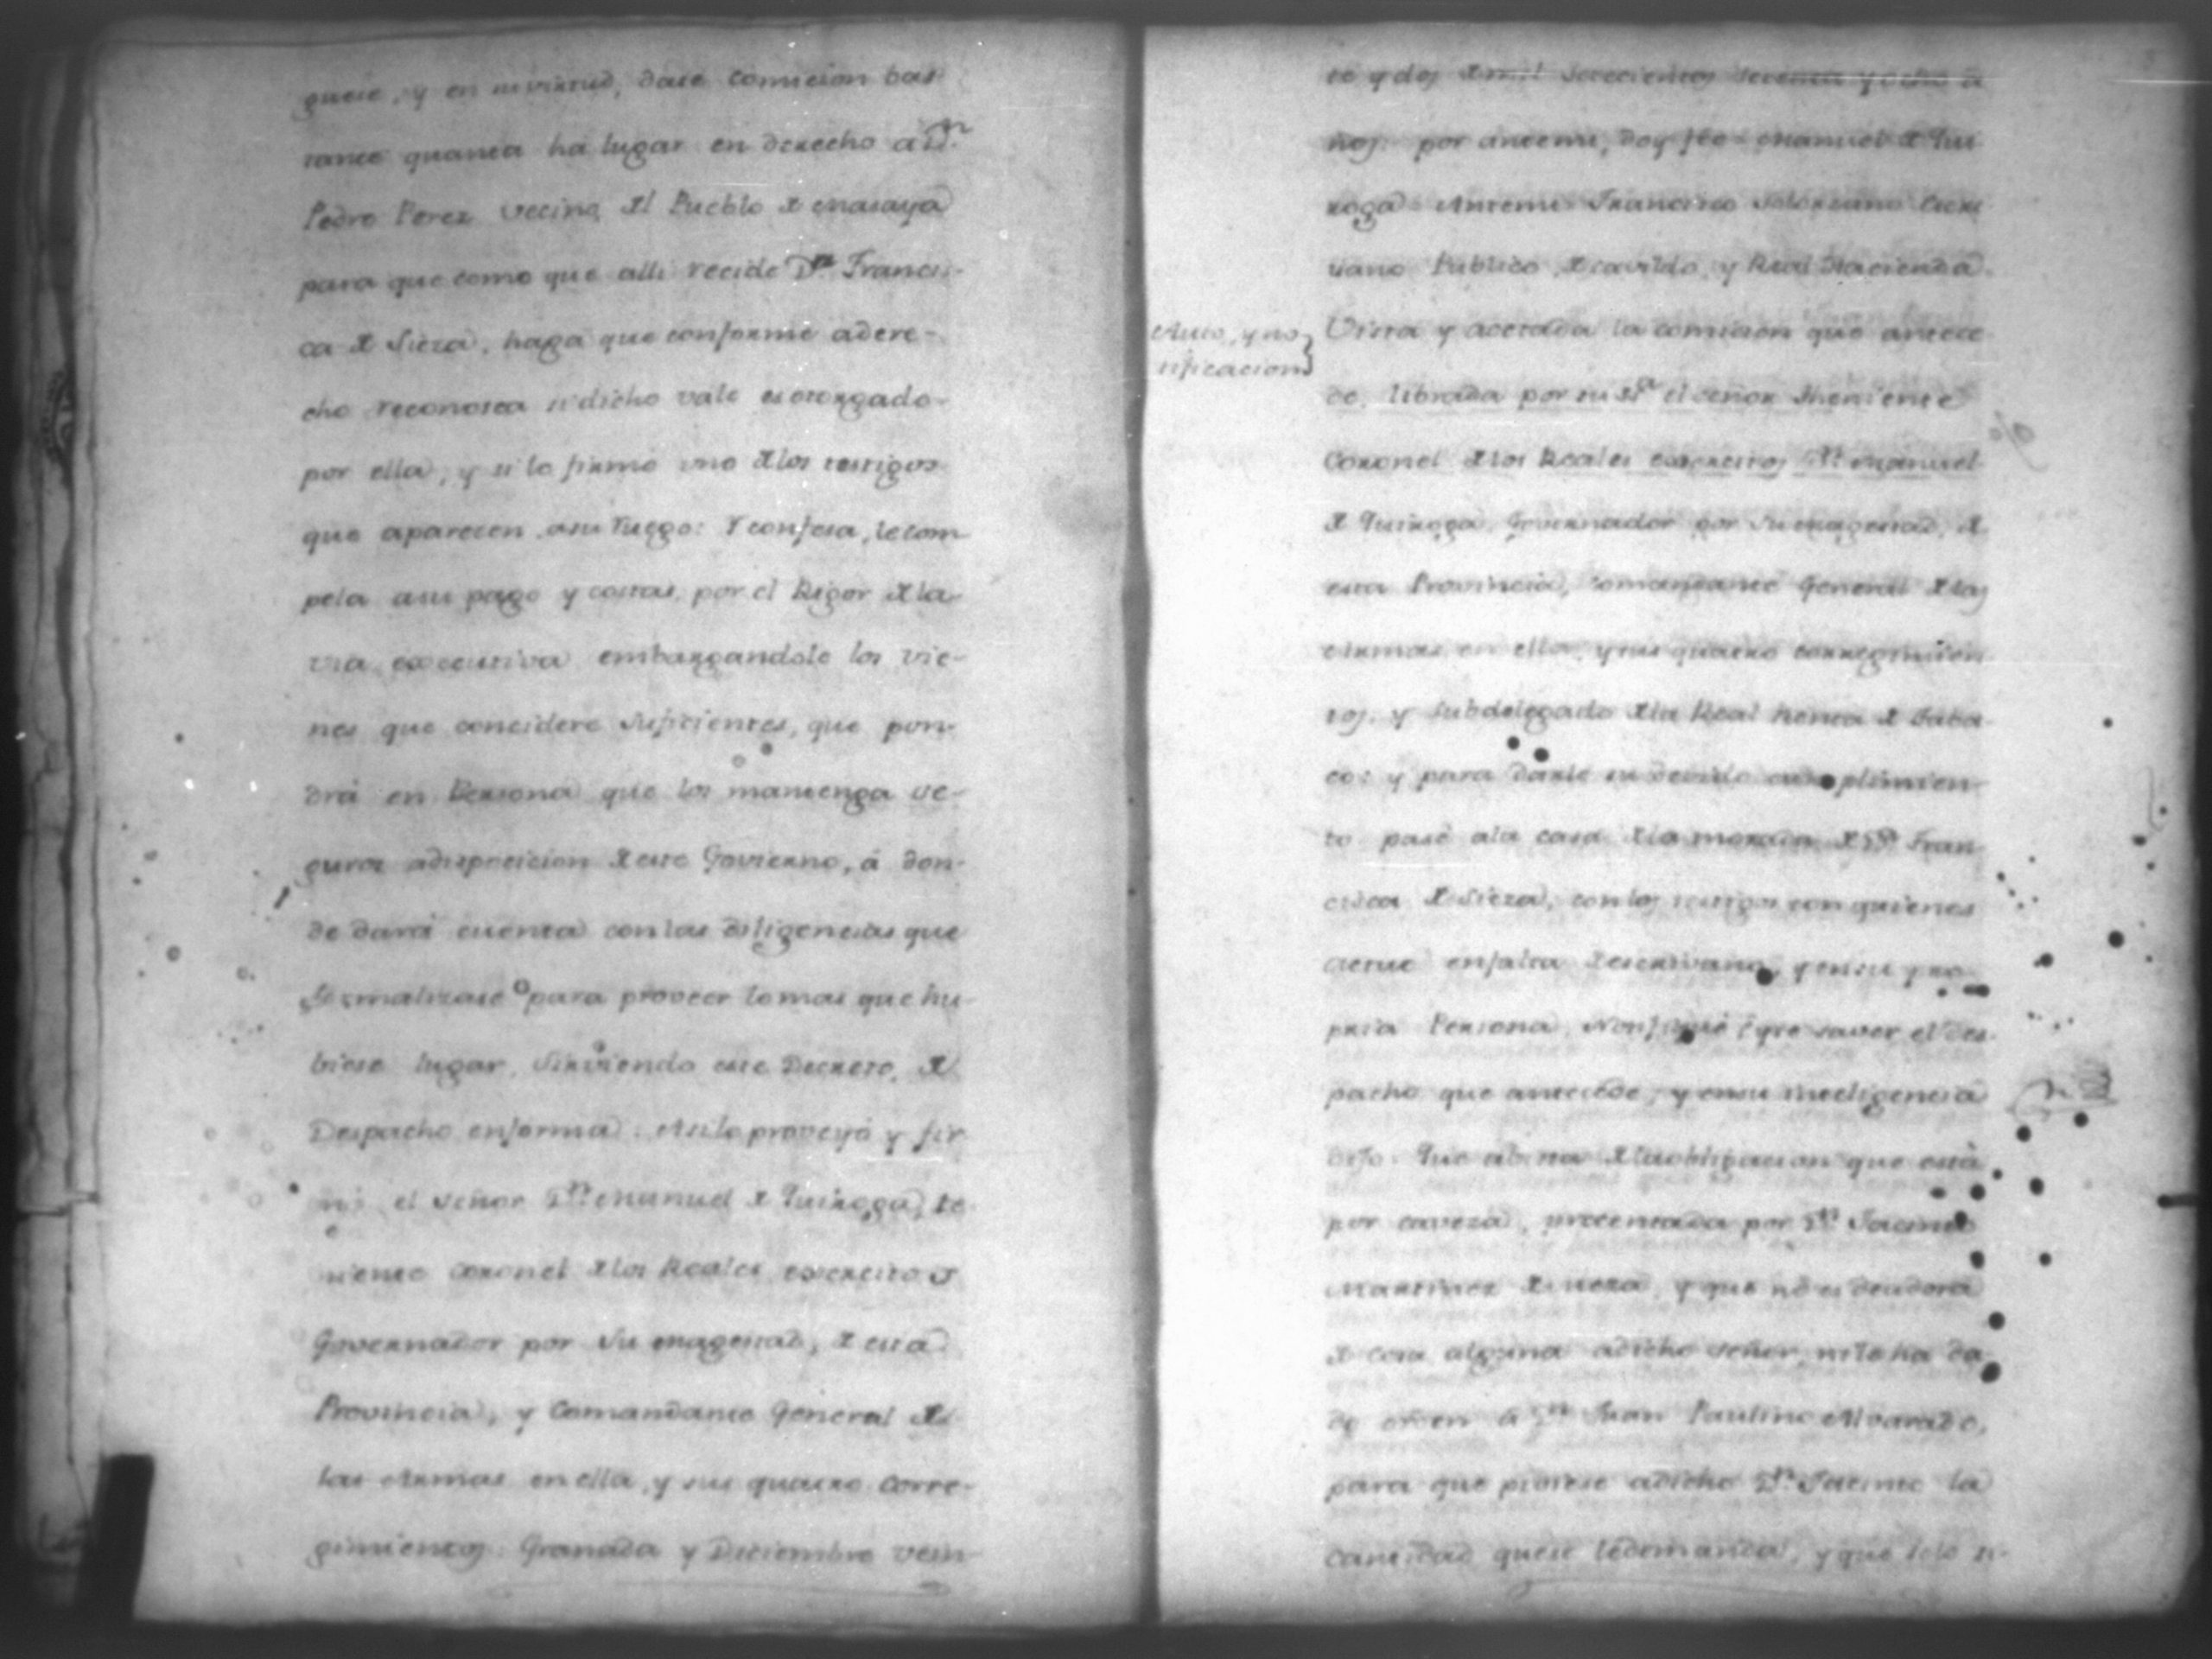 guese, y en su virtud, dase comicion bas
tante quanta ha lugar en derecho a Dn.
Pedro Perez vecino del Pueblo de Masaya
para que como que alli recide Da. Francis-
ca de Sieza, haga que conforme a dere-
cho reconosca si dicho vale es otorgado
por ella, y si lo firmó uno de los testigos
que aparecen a su ruego: Y confesa, le com
pela a su pago y costas, por el Rigor de la
via executiva embargandole los vie-
nes que concidere suficientes, que pon-
drá en Persona que los mantenga se-
guros a disposicion de este Govierno, á don-
de dará cuenta con las diligencias que
formalizase para proveer lo mas que hu-
biese lugar, sirviendo este Decreto, de
Despacho en forma: Asi lo proveyó y fir
mó el señor Dn. Manuel de Quiroga, te
niente coronel de los Reales exercitos
Governador por Su Magestad, de esta
Provincia, y Comandante General de
las Armas en ella, y sus quatro Corre-
gimientos. Granada y Diciembre vein-
te y dos de mil setecientos setenta y ocho a
ños: por antemi, doy fee = Manuel de Qui
roga = Antemi Francisco Solorzano Escri
vano Publico, de cavildo, y Real Hacienda.
Auto, y no
tificacion
Vista y acetada la comicion que antece
de, librada por su Sa. el señor Theniente
Coronel de los Reales exercitos Dn. Manuel
de Quiroga, Governador por Su Magestad, de
esta Provincia, Comandante General de las
Armas en ella, y sus quatro corregimien
tos, y subdelegado de la Real Renta de Taba
co: y para darle su devido cumplimien-
to pasé a la casa de la morada de Da. Fran
cisca de Sieza, con los testigos con quienes
actuo en falta de escrivano, y en su pro
pria Persona, Notifiqué é yse saver el des
pacho que antecede, y en su inteligencia
dixo: Que de la obligacion que está
por caveza, precentada por Dn. Jacinto
Martinez de y que no es deudora
de cosa alguna a dicho señor, ni le ha da
do orden á Dn. Juan Paulino Alvarado,
para que pidiese a dicho Dn. Jacinto la
cantidad que se le demanda, y que